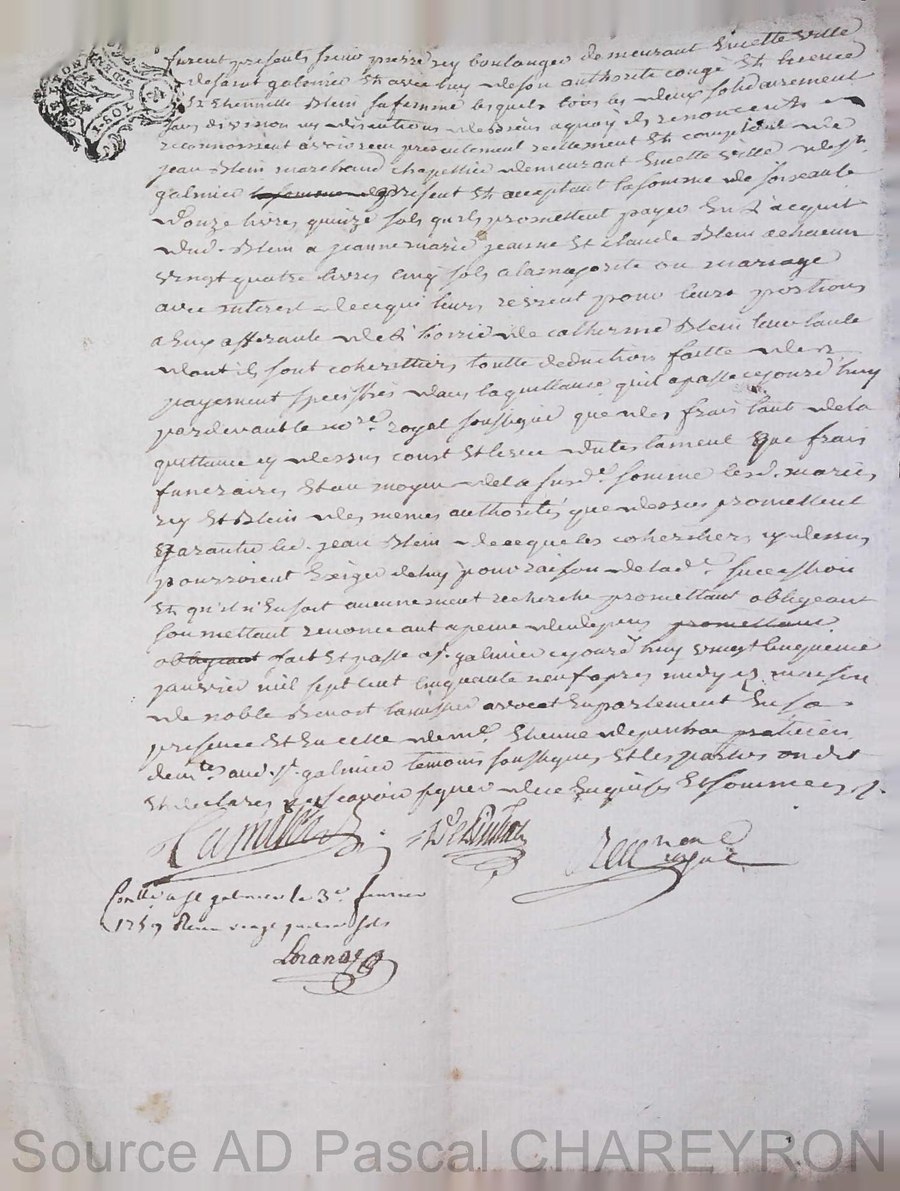 furent presents sieur pierre rey boulanger demeurant en cette ville
de saint galmier Et avec luy de son authorité congé Et licence
Estiennette Blein sa femme lesquels tous les deux solidairement
sans division ny discution a quoy ils renoncent
reconnoissent avoir eu presentement reellement Et comptant de
jean Blein marchand chapellier demeurant en cette ville de st
galmier present Et acceptant la somme de soixante
douze livres quinze sols qu'ils promettent payer En l'acquit
dud. Blein a jeanne marie jeanne Et claude Blein a chacun
vingt quatre livres cinq sols a la majorité ou mariage
avec interest de ce qui leurs revient pour leurs portions
a Eux afferante de l'hoirie de catherine Blein leur tante
dont ils sont coheritiers toutte deduction faitte des
payement speciffiés dans la quittance qu'il a passé cejourd'huy
pardevant le nore. royal soussigné que des frais tant de la
quittance cy dessus controlle du testament que frais
funeraires, Et au moyen de la susde. somme lesd. mariés
rey Et Blein des memes authorités que dessus promettent
garantir led. jean Blein de ce que les coheritiers cy dessus
pourroient Exiger de luy pour raison de lad.e succession
Et qu'il n'En soit aucunement recherché promettant obligeant
soumettant renonceant a peine de depens promettans
obligeant fait Et passé a st. galmier cejourd'huy vingt cinquieme
janvier mil sept cent cinquante neuf apres midy maison
de noble Benoist avocat En parlement En sa
presence Et En celle de me Etienne praticien
demt. aud. st. galmier temoins soussignés Et les parties ont dit
Et declaré ne scavoir signer de ce Enquises Et sommees

Conllé a st galmier le 3e. fevrier
1759 Reçu vingt quatre sols
Source AD Pascal CHAREYRON